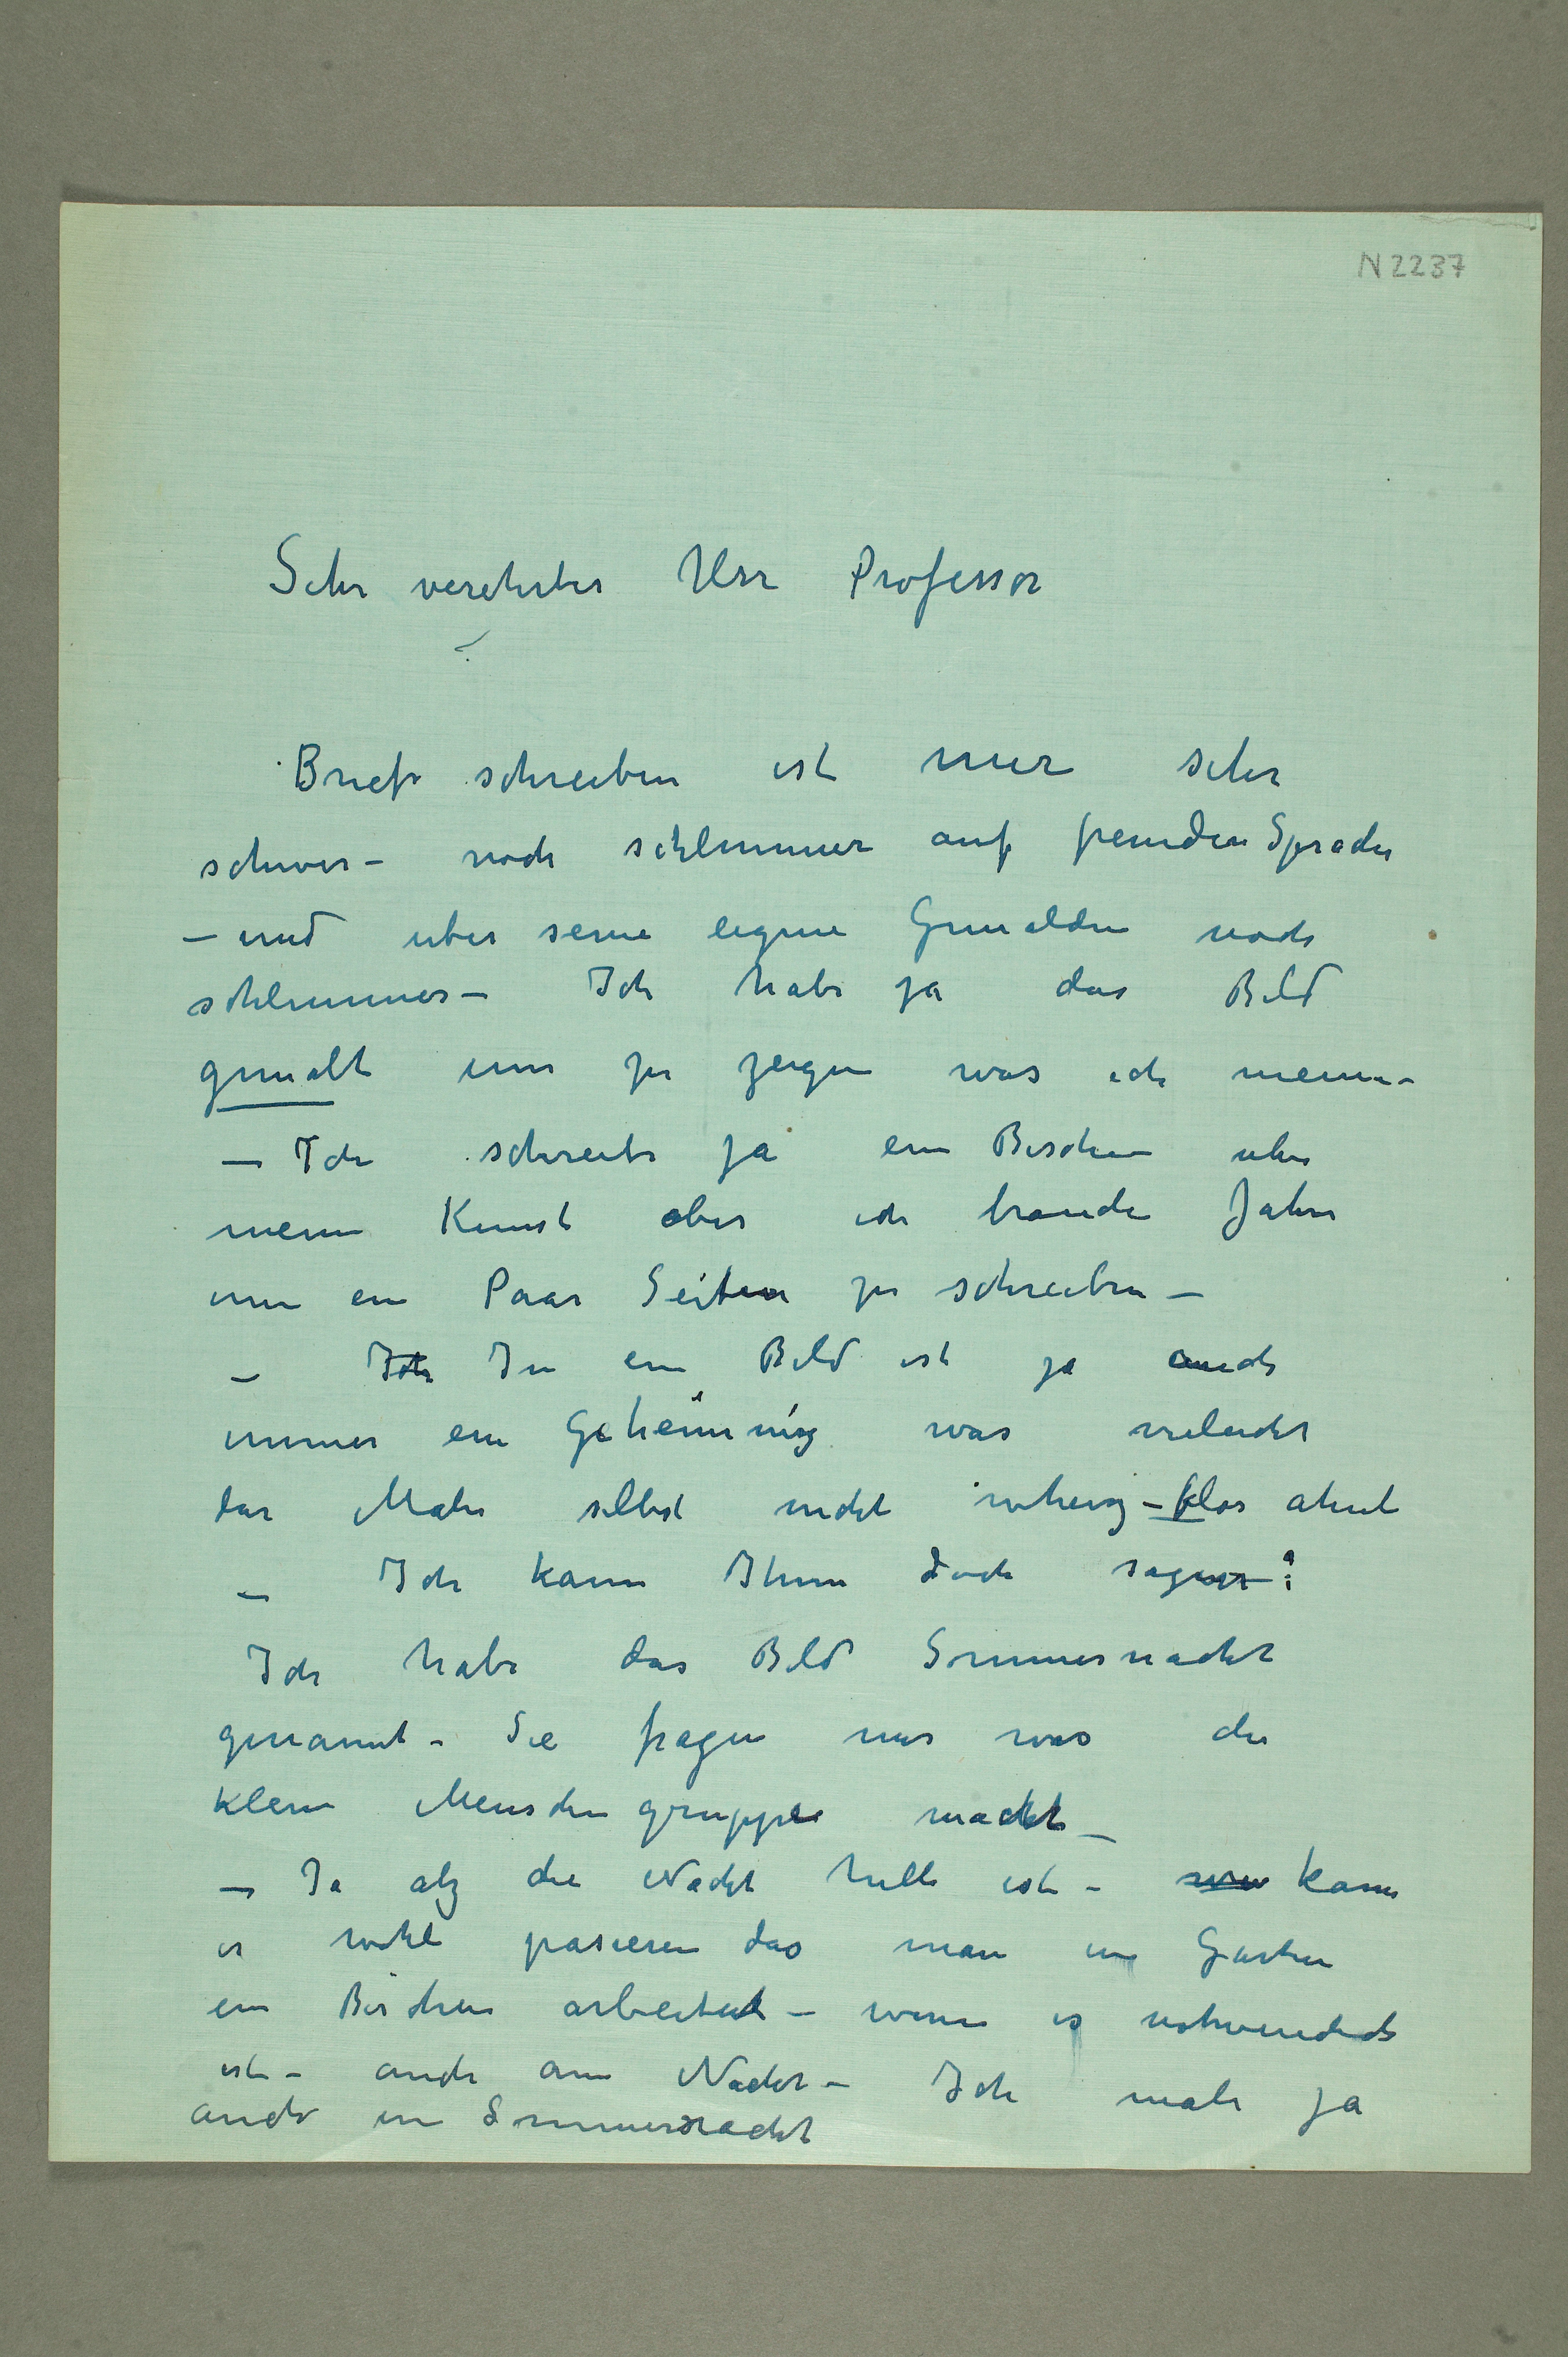 N 2237
Sehr verehrter Herr Professor
Briefe schreiben ist mir sehr
schwer – noch schlimmer auf fremden Sprache
– und uber seine eigene Gemälden noch
schlimmer – Ich habe ja das Bild
gemalt um zu zeigen was ich meine –
– Ich schreibe ja ein Bischen uber
meine Kunst aber ich brauche Jahre
um ein Paar Seiten zu schreiben –
– Ich In ein Bild ist ja auch
immer ein Geheimniz was vieleicht
der Maler selbst nicht klar ahnt
– Ich kann Ihnen doch sagen:
Ich habe das Bild Sommernacht
genannt – Sie fragen mir was die
kleine Menschengruppe macht –
– Ja alz die Nacht helle ist – kann
es wohl pasieren das man im Garten
ein Bischen arbeitet – wenn es notwendich
ist – auch am Nacht – Ich male ja
auch in Sommernacht